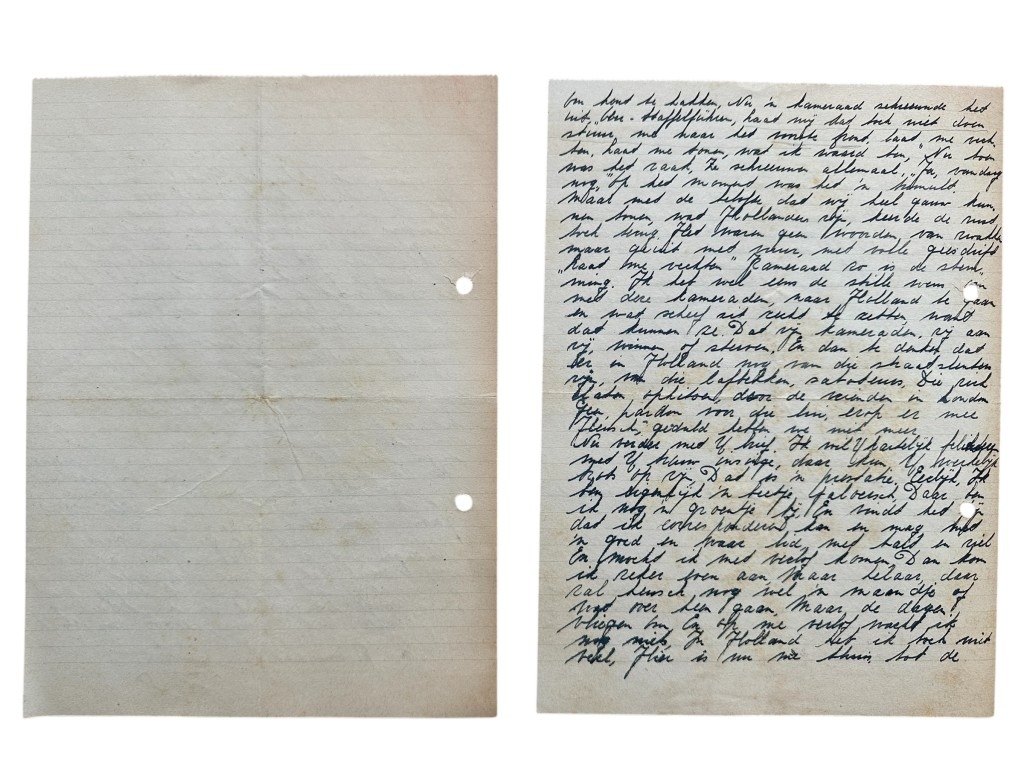 om hond te hakken, Nu 'n kameraad schreeuwde het
uit, "Ober-Staffelführer, haad mij dat toch niet doen
stuur me naar het front, laad me vech
ten, haad me tonen, wat ik waard ben, Nu toen
was het raak, Ze schreeuwen allemaal, "Ja, vandaag
nog," Op het moment was het 'n tumuld.
Maar met de belofte dat wij heel gauw kun,
nen tonen, wat Hollanders zijn, keerde de rust
toch terug. Het waren geen woorden van zwakke
maar geuit met vuur, met volle geestdrift
"Laad me vechten" Kameraad zo is de stem,
ming. Ik heb wel eens de stille wens om
met deze kameraden, naar Holland te gaan
en wat scheef zit recht te zetten want
dat kunnen ze. Dat zijn kameraden, zij aan
zij, winnen of sterven, En dan te denken dat
er in Holland nog van die
zijn, van die lafbekken, saboteurs, Die zich
laten ophitsen, door de vrienden in Londen
Geen pardon voor die lui, erop er mee
Heusch, geduld hebben we niet meer.
Nu verder met Uw brief. Ik wil U hartelijk
met Uw daar kun U werkelijk
trots op zijn, Dat is 'n prestatie, Eerlijk, Ik
ben eigenlijk 'n beetje jaloersch, Daar ben
ik nog 'n groentje bij En vindt het fijn
dat ik corresponderen kan en mag met
'n goed en waar lid, met hard en ziel
En mocht ik met verlof komen Dan kom
ik zeker even aan, Maar helaas, daar
zal heusch nog wel 'n maandje of
wat over heen gaan, Maar, de dagen
vliegen om En op me verlof wacht ik
nog niet, In Holland heb ik toch niet
veel, Hier is nu me thuis, tot de